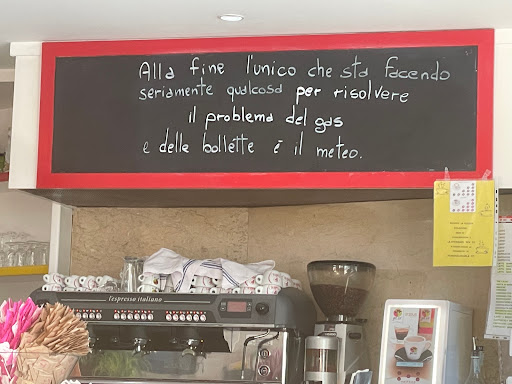 Alla fine l'unico che sta facendo
seriamente qualcosa per risolvere
il problema del gas
e delle bollette è il meteo.
l'espresso italiano